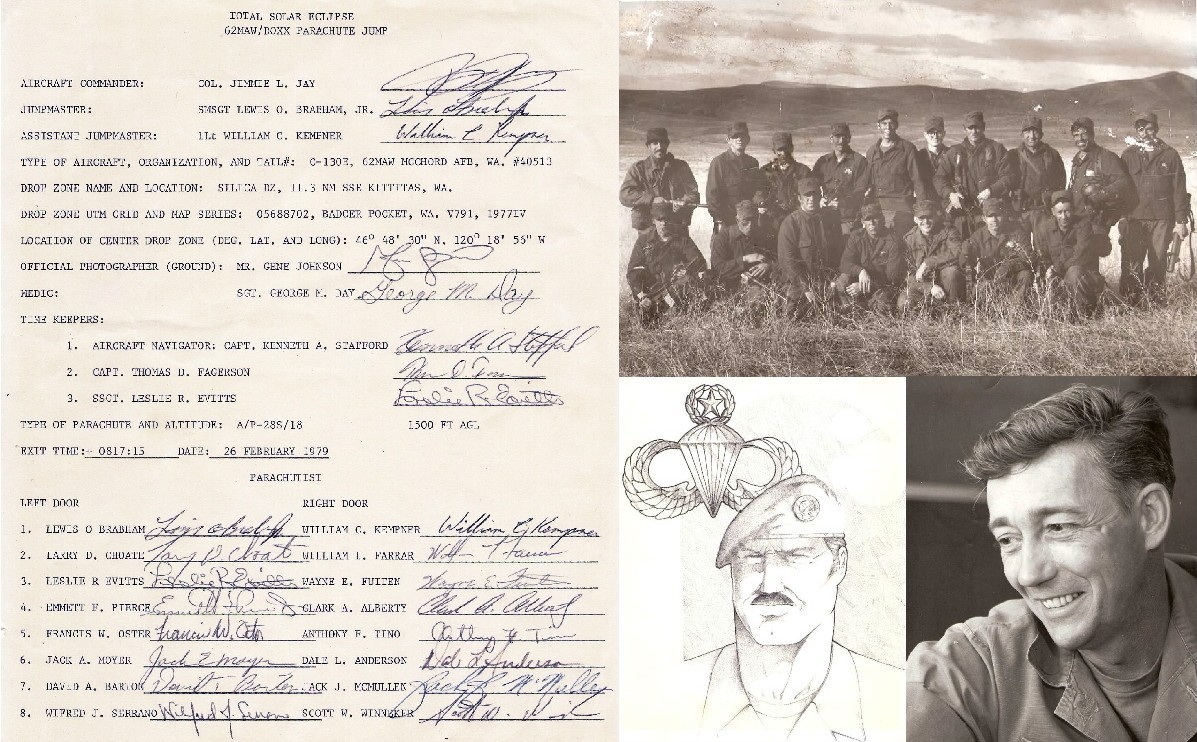 TOTAL SOLAR ECLIPSE
62MAW/DOXX PARACHUTE JUMP
AIRCRAFT COMMANDER: COL. JIMMIE L. JAY
JUMPMASTER: SMSGT LEWIS O. BRABHAM, JR.
ASSISTANT JUMPMASTER: 1Lt WILLIAM C. KEMPNER William C Kempner
TYPE OF AIRCRAFT, ORGANIZATION, AND TAIL#: C-130E, 62MAW MCCHORD AFB, WA. #40513
DROP ZONE NAME AND LOCATION: SILICA DZ, 11.3 NM SSE KITTITAS, WA.
DROP ZONE UTM GRID AND MAP SERIES: 05688702, BADGER POCKET, WA. V791, 1977IV
LOCATION OF CENTER DROP ZONE (DEG. LAT. AND LONG): 46° 48' 30" N. 120° 18' 56" W
OFFICIAL PHOTOGRAPHER (GROUND): MR. GENE JOHNSON
MEDIC: SGT. GEORGE M. DAY George M. Day
TIME KEEPERS:
1. AIRCRAFT NAVIGATOR: CAPT. KENNETH A. STAFFORD Kenneth A Stafford
2. CAPT. THOMAS D. FAGERSON
3. SSGT. LESLIE R. EVITTS Leslie R Evitts
TYPE OF PARACHUTE AND ALTITUDE: A/P-28S/18 1500 FT AGL
EXIT TIME: 0817:15 DATE: 26 FEBRUARY 1979
PARACHUTIST
LEFT DOOR RIGHT DOOR
1. LEWIS O BRABHAM WILLIAM C. KEMPNER William C Kempner
2. LARRY D. CHOATE Larry D Choate WILLIAM T. FARRAR
3. LESLIE R EVITTS Leslie R. Evitts WAYNE E. FUITEN Wayne E
4. EMMETT F. PIERCE CLARK A. ALBERTY Clark A. Alberty
5. FRANCIS W. OSTER Francis W. Oster ANTHONY F. IINO
6. JACK A. MOYER Jack Moyer DALE L. ANDERSON Dale L Anderson
7. DAVID A. BARTON JACK J. MCMULLEN
8. WIFRED J. SERRANO Wilfred J. SCOTT W. WINNEKER Scott W.